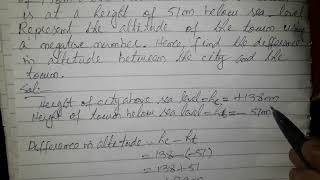 is at a height of 51m below sea level
Represent the altitude of the town using
a negative number. Hence, find the difference
in altitude between the city and the
town.
Sol:
Height of city above sea level = hc = +138m
Height of town below sea level = ht = - 51m
Difference in altitude = hc - ht
= 138 - (-51)
= 138 + 51